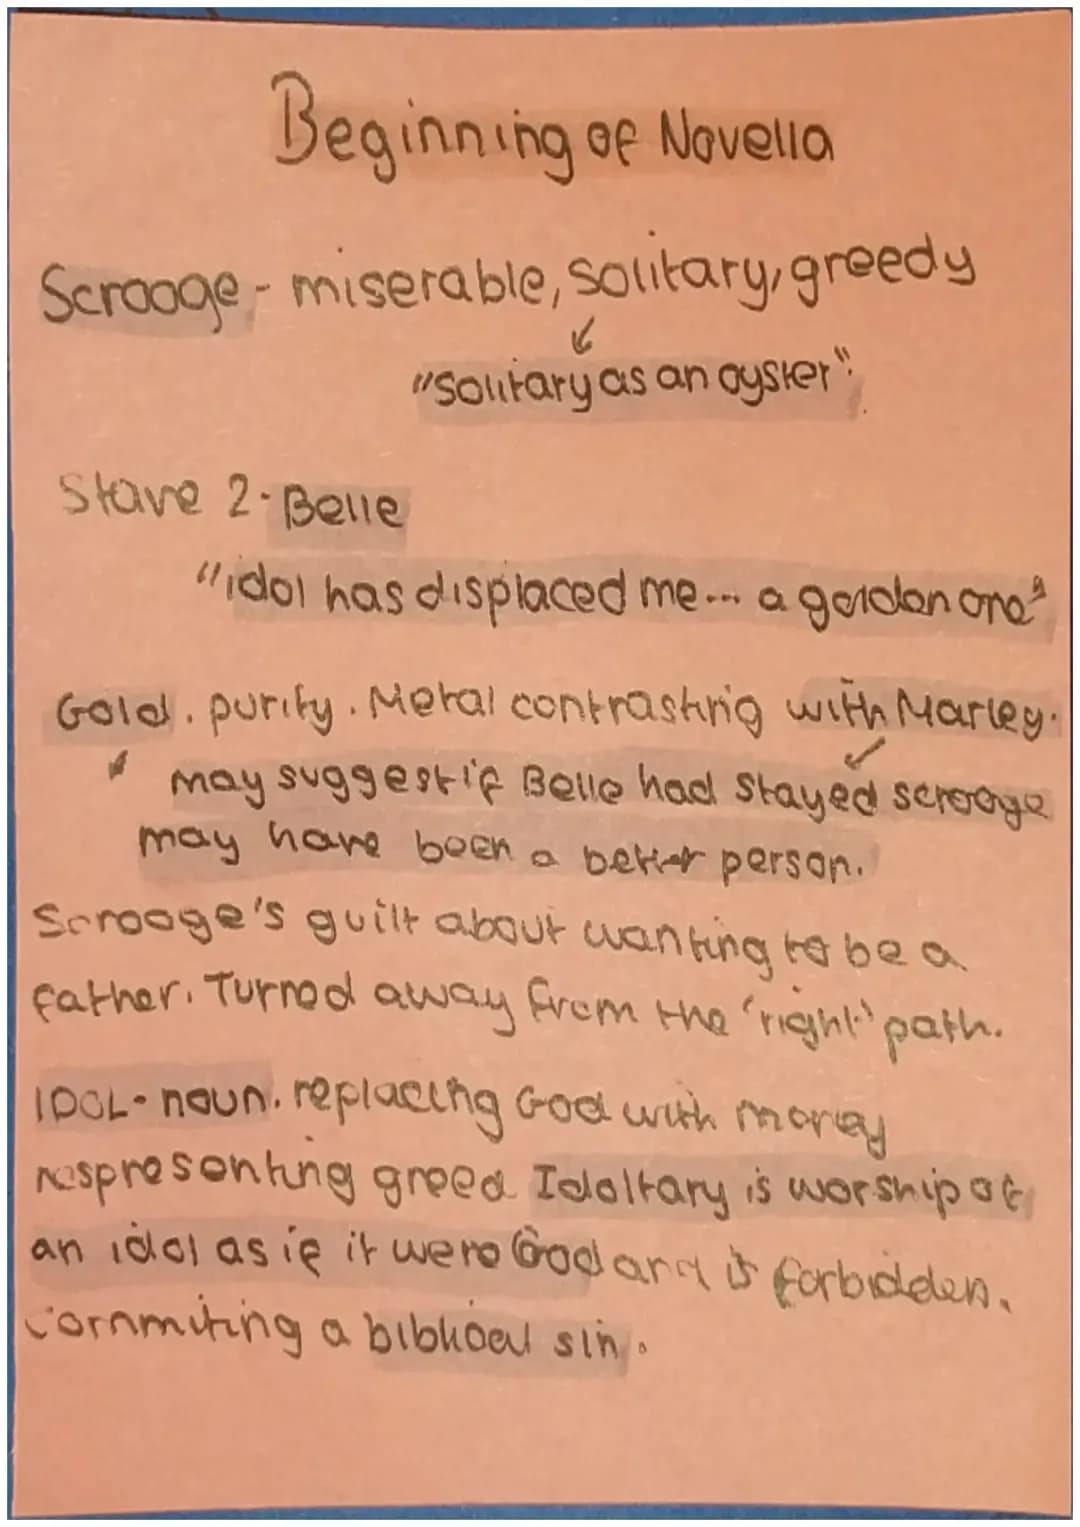 Beginning of Novella
Scrooge - miserable, solitary, greedy
"solitary as an oyster".
Stave 2 - Belle
"idol has displaced me... a goldon one"
Gold. purity. Metal contrasting with Marley.
may suggest if Belle had stayed scrooge
may have been a better person.
Scrooge's guilt about wanting to be a
father. Turned away from the 'right' path.
IDOL - noun. replacing God with money
respresenting greed Idoltary is worship of
an idol as if it were God and is forbidden.
Commiting a biblical sin.